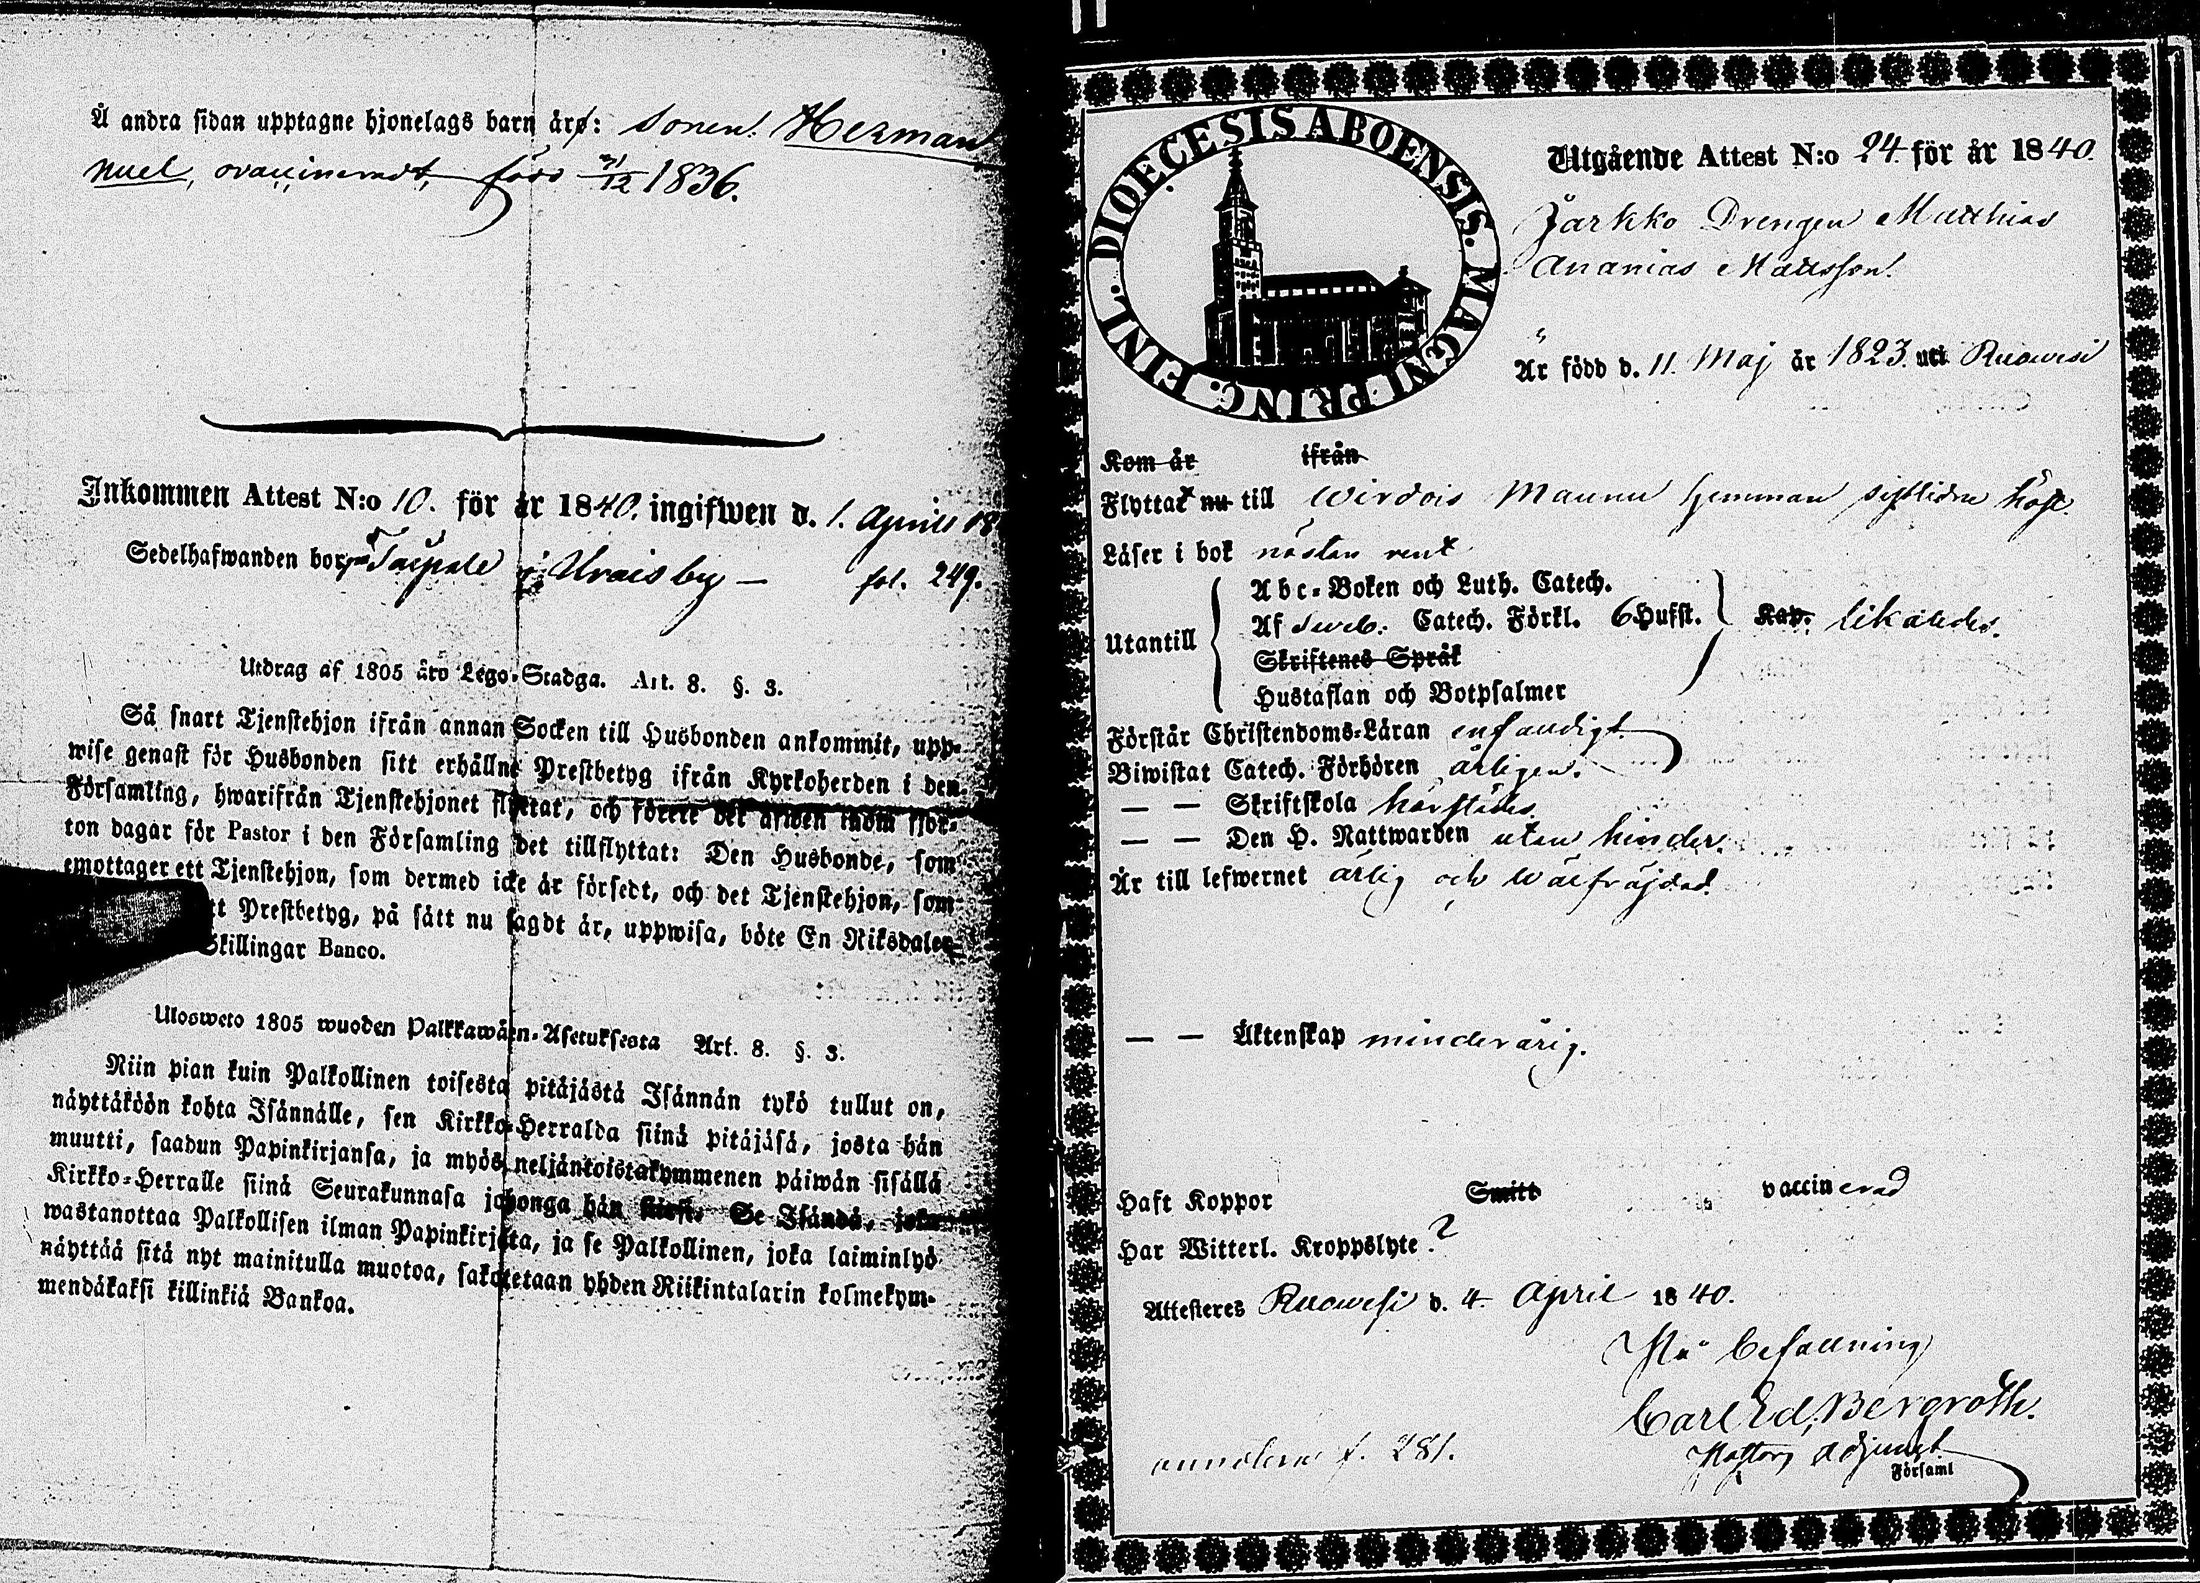 Å andra sidan upptagne hjonelags barn äro: sonen Herman
nuel, ovaccineradt, född 31/12 1836.
Inkommen Attest N:o 10. för år 1840. ingifwen d. 1. April 18
Sedelhafwanden bor på Taipale i Uraisby — fol. 249.
Utdrag af 1805 års Lego-Stadga. Art. 8. §. 3.
Så snart Tjenstehjon ifrån annan Socken till Husbonden ankommit, upp-
wise genast för Husbonden sitt erhållne Prestbetyg ifrån Kyrkoherden i den
Församling, hwarifrån Tjenstehjonet flyttat, och förete det äfwen inom fjor-
ton dagar för Pastor i den Församling det tillflyttat: Den Husbonde, som
emottager ett Tjenstehjon, som dermed icke är försedt, och det Tjenstehjon, som
tt Prestbetyg, på sätt nu sagdt är, uppwisa, böte En Riksdaler
Skillingar Banco.
Ulosweto 1805 wuoden Palkkawäen-Asetuksesta Art. 8. §. 3.
Niin pian kuin Palkollinen toisesta pitäjästä Isännän tykö tullut on,
näyttäköön kohta Isännälle, sen Kirkko-Herralda siinä pitäjäsä, josta hän
muutti, saadun Papinkirjansa, ja myös neljäntoistakymmenen päiwän sisällä
Kirkko-Herralle siinä Seurakunnasa johonga hän siirsi. Se Isändä, joka
wastanottaa Palkollisen ilman Papinkirjata, ja se Palkollinen, joka laiminlyö
näyttää sitä nyt mainitulla muotoa, sakotetaan yhden Riikintalarin kolmekym-
mendäkaksi killinkiä Bankoa.
DIOECESIS ABOENSIS. MAGNI PRINC. FINL.
Utgående Attest N:o 24 för år 1840.
Jarkko Drengen Matthias
Ananias Mattsson.
Är född d. 11. Maj år 1823. uti Ruowesi
Kom år ifrån
Flyttat nu till Wirdois Maunu hemman sistlidne höst.
Läser i bok nästan rent
Abc-Boken och Luth. Catech.
Utantill Af Sveb. Catech. Förkl. 6 Hufst. Kap. likaledes.
Skriftenes Språk
Hustaflan och Botpsalmer
Förstår Christendoms-Läran enfaldigt
Biwistat Catech. Förhören årligen.
— — Skriftskola härstädes.
— — Den H. Nattwarden utan hinder.
Är till lefwernet ärlig och wälfräjdad.
— — Äktenskap minderårig.
Haft Koppor Smitt vaccinerad
Har Witterl. Kroppslyte ?
Attesteres Ruowesi d. 4. April 1840.
På befallning
Carl Ed. Bergroth.
Pastors adjunct
Församl
f. 281.